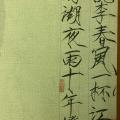 李春風一杯酒
湖夜雨十年